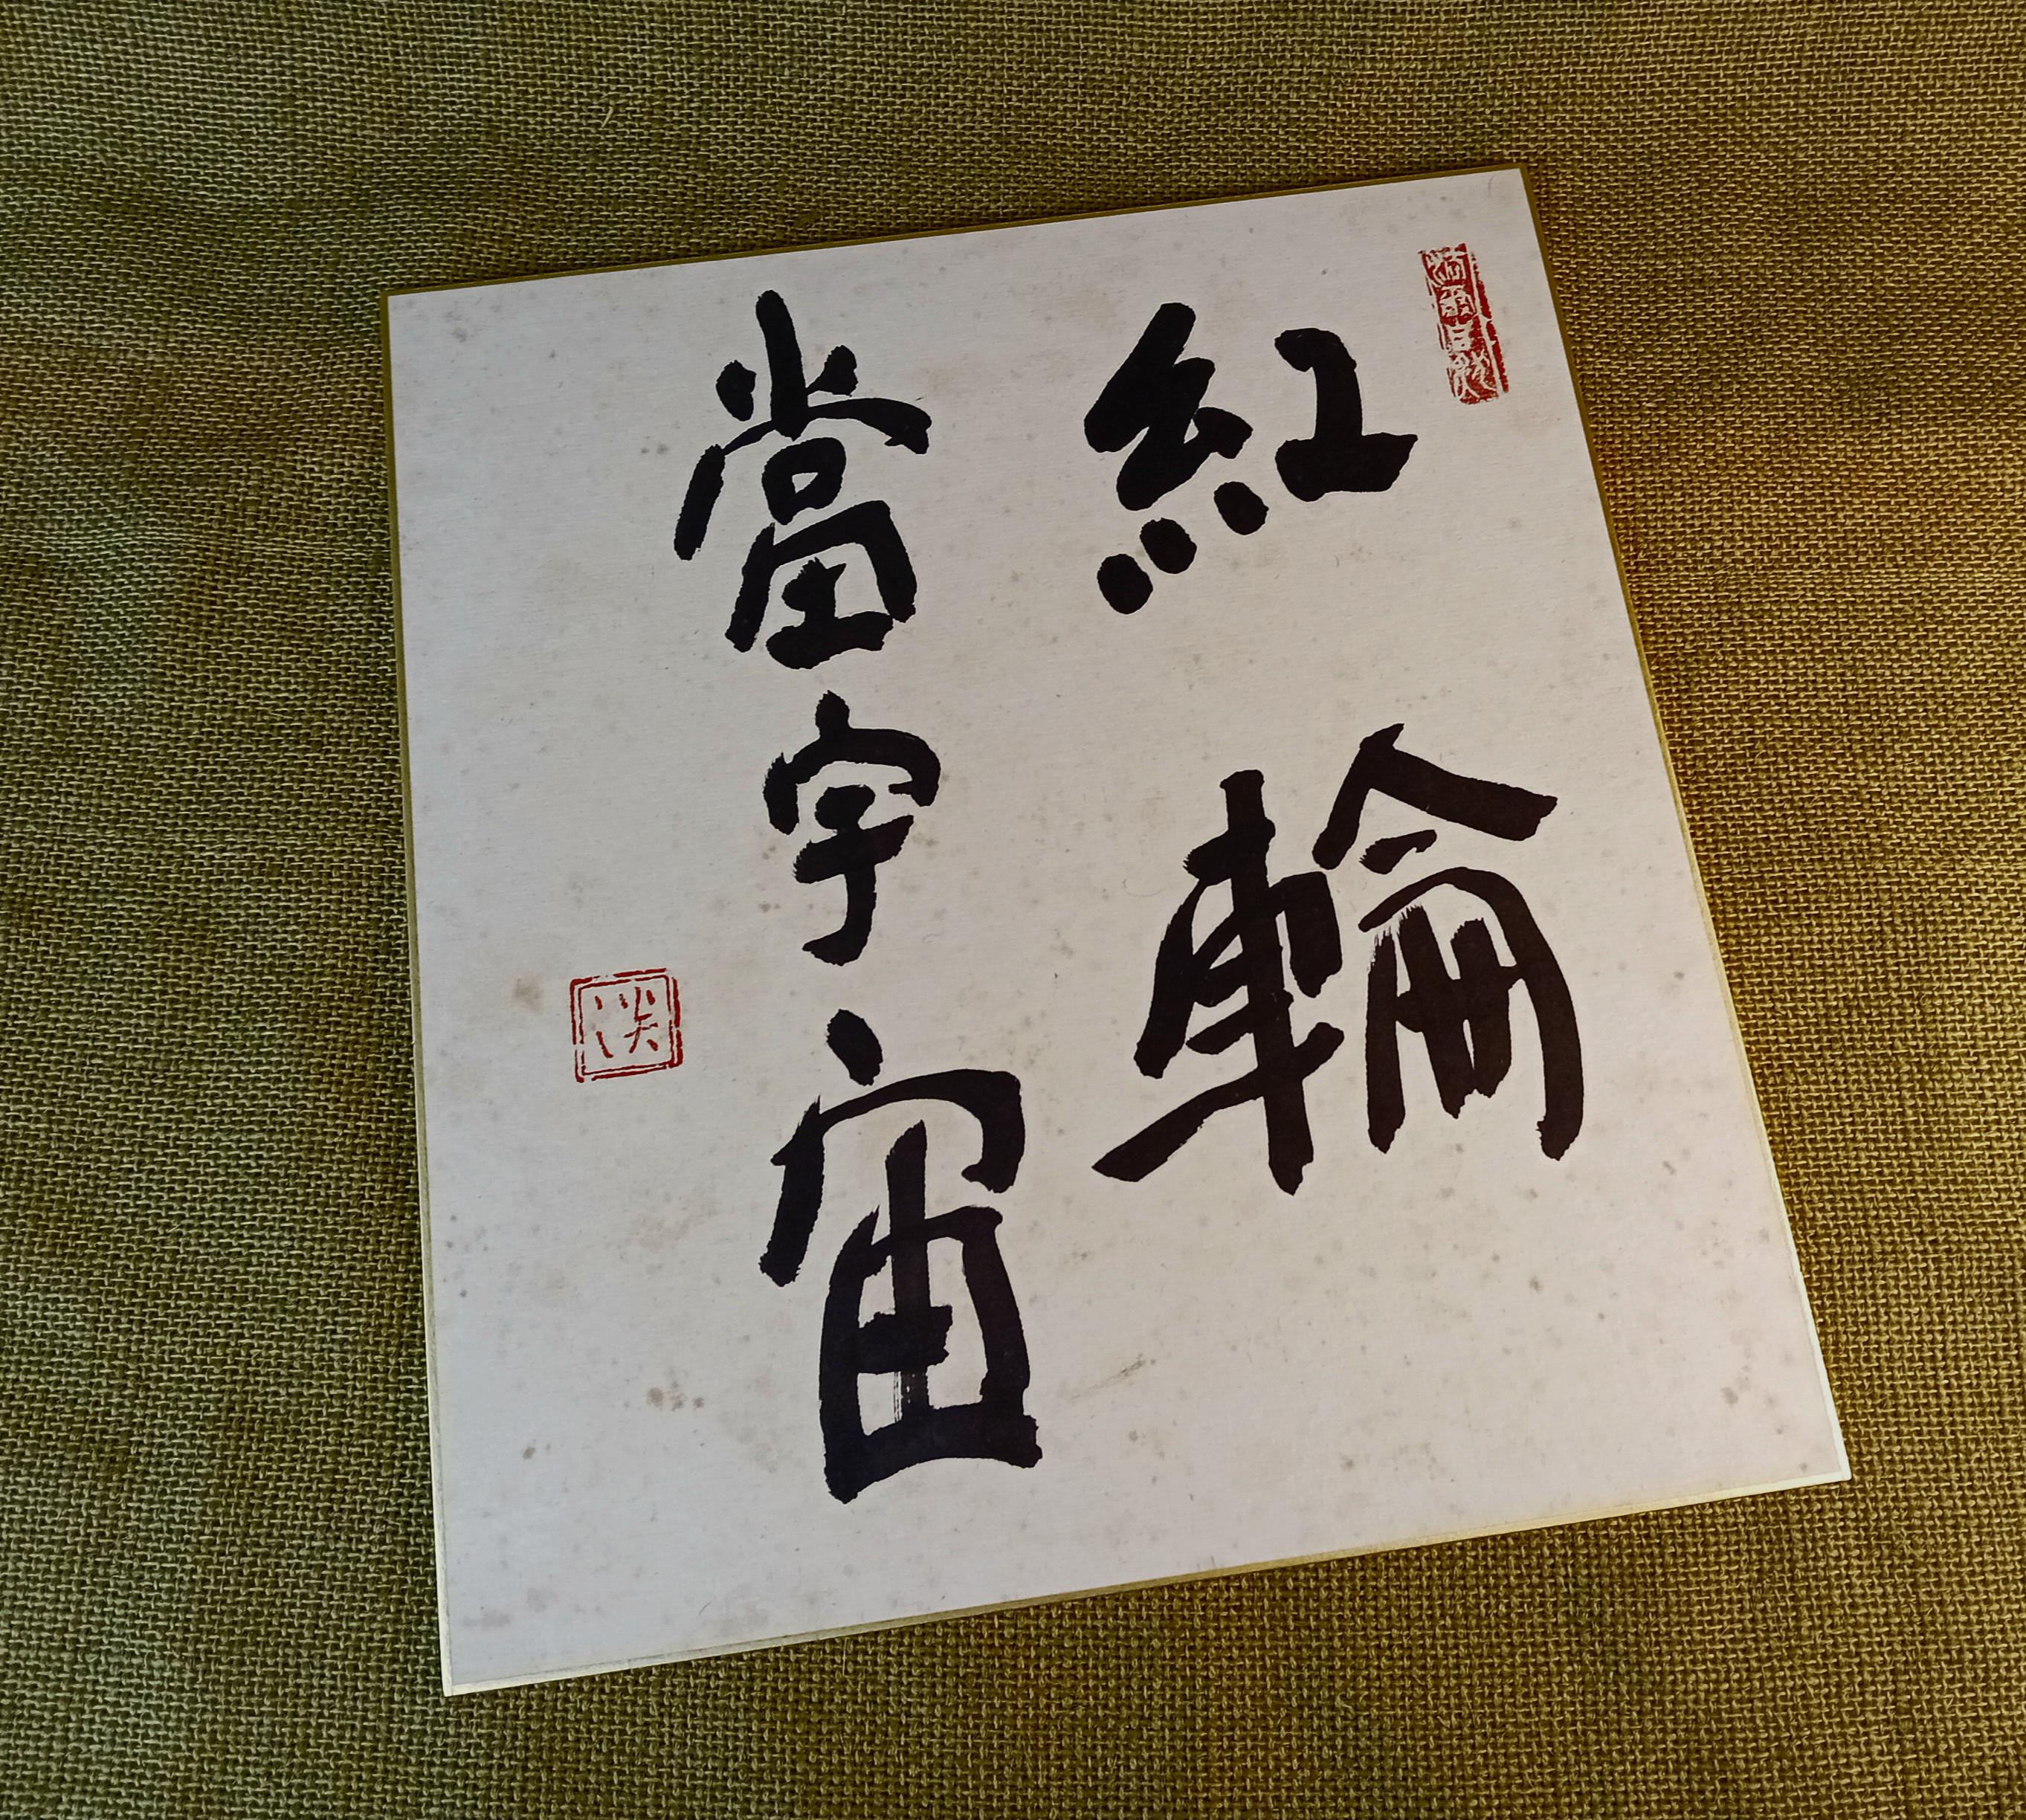 紅輪
當宇宙
淡